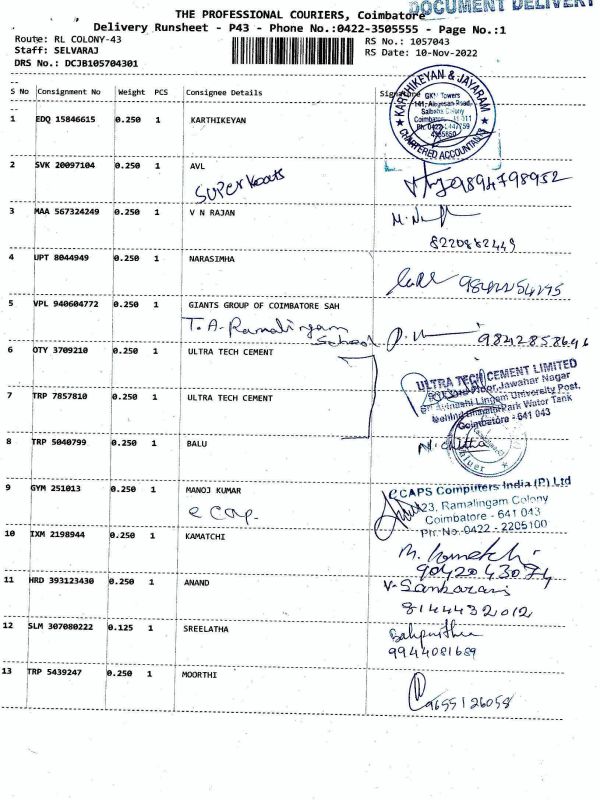 DOCUMENT DELIVERY
THE PROFESSIONAL COURIERS, Coimbatore
Delivery Runsheet - P43 - Phone No.:0422-3505555 - Page No.:1
Route: RL COLONY-43
RS No.: 1057043
Staff: SELVARAJ
RS Date: 10-Nov-2022
DRS No.: DCJB105704301
S No Consignment No Weight PCS Consignee Details Signature
1 EDQ 15846615 0.250 1 KARTHIKEYAN
KARTHIKEYAN & JAYARAM
GKN Towers
Saibaba Colony
CHARTERED ACCOUNTANTS
2 SVK 20097104 0.250 1 AVL
Super 9894798952
3 MAA 567324249 0.250 1 V N RAJAN
8220882449
4 UPT 8044949 0.250 1 NARASIMHA
5 VPL 940604772 0.250 1 GIANTS GROUP OF COIMBATORE SAH
T. A. Ramalingam
School 9842858696
6 OTY 3709210 0.250 1 ULTRA TECH CEMENT
ULTRA TECH CEMENT LIMITED
Floor, Jawahar Nagar
Avinashi Lingam University Post,
Behind Bharathi Park Water Tank
Coimbatore - 641 043
7 TRP 7857810 0.250 1 ULTRA TECH CEMENT
8 TRP 5040799 0.250 1 BALU
9 GYM 251013 0.250 1 MANOJ KUMAR
e cap.
eCAPS Computers India (P) Ltd
23, Ramalingam Colony
Coimbatore - 641 043
Ph: No. 0422 - 2205100
10 IXM 2198944 0.250 1 KAMATCHI
M. Kamatchi
9042043074
11 HRD 393123430 0.250 1 ANAND
V. Sankarani
8144432012
12 SLM 307080222 0.125 1 SREELATHA
9944081689
13 TRP 5439247 0.250 1 MOORTHI
9655126058